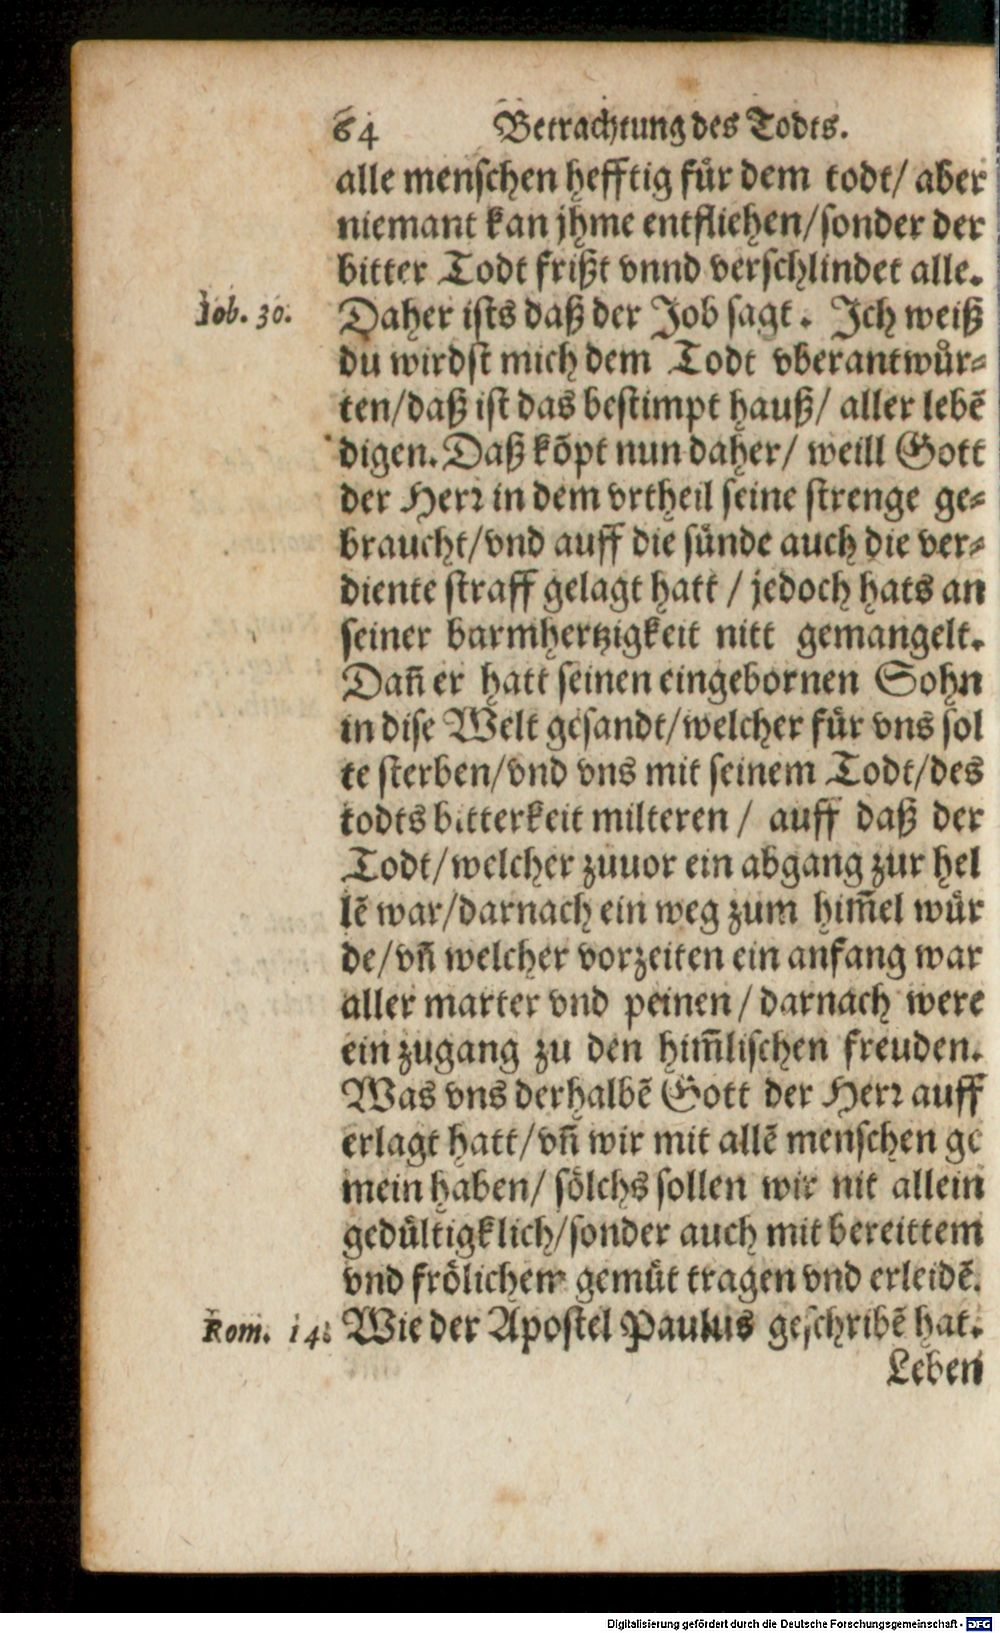 64 Betrachtung des Todts.
alle menschen hefftig für dem todt/ aber
niemant kan jhme entfliehen/sonder der
bitter Todt frißt vnnd verschlindet alle.
Iob. 30. Daher ists daß der Job sagt. Ich weiß
du wirdst mich dem Todt vberantwůr-
ten/daß ist das bestimpt hauß/ aller lebẽ
digen. Daß kõpt nun daher/ weill Gott
der Herꝛ in dem vrtheil seine strenge ge-
braucht/vnd auff die sünde auch die ver-
diente straff gelagt hatt / jedoch hats an
seiner barmhertzigkeit nitt gemangelt.
Dañ er hatt seinen eingebornen Sohn
in dise Welt gesandt/welcher für vns sol
te sterben/vnd vns mit seinem Todt/des
todts bitterkeit milteren / auff daß der
Todt/welcher zuuor ein abgang zur hel
lẽ war/darnach ein weg zum him̃el wür
de/vñ welcher vorzeiten ein anfang war
aller marter vnd peinen/ darnach were
ein zugang zu den him̃lischen freuden.
Was vns derhalbẽ Gott der Herꝛ auff
erlagt hatt/vñ wir mit allẽ menschen ge
mein haben/ sölchs sollen wir nit allein
gedültigklich/sonder auch mit bereittem
vnd frölichem gemüt tragen vnd erleidẽ.
Rom. 14. Wie der Apostel Paulus geschribẽ hat.
Leben
Digitalisierung gefördert durch die Deutsche Forschungsgemeinschaft - DFG